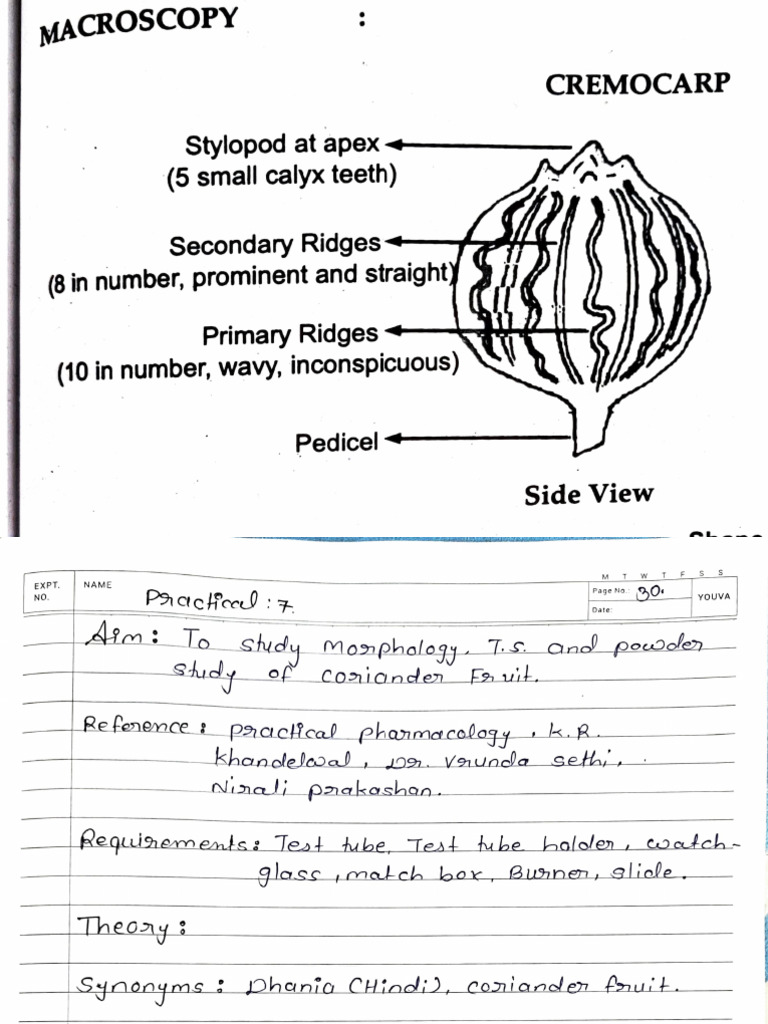 MACROSCOPY :
CREMOCARP
Stylopod at apex
(5 small calyx teeth)
Secondary Ridges
(8 in number, prominent and straight)
Primary Ridges
(10 in number, wavy, inconspicuous)
Pedicel
Side View
EXPT. NO.
NAME
Practical : 7.
M T W T F S S
Page No.: 30.
Date:
YOUVA
Aim : To study morphology, T.S. and powder
study of coriander Fruit.
Reference : practical pharmacology, K.R.
Khandelwal, Dr. Vrunda Sethi,
Nirali prakashan.
Requirements : Test tube, Test tube holder, watch-
glass, match box, Burner, slide.
Theory :
Synonyms : Dhania (Hindi), coriander fruit.